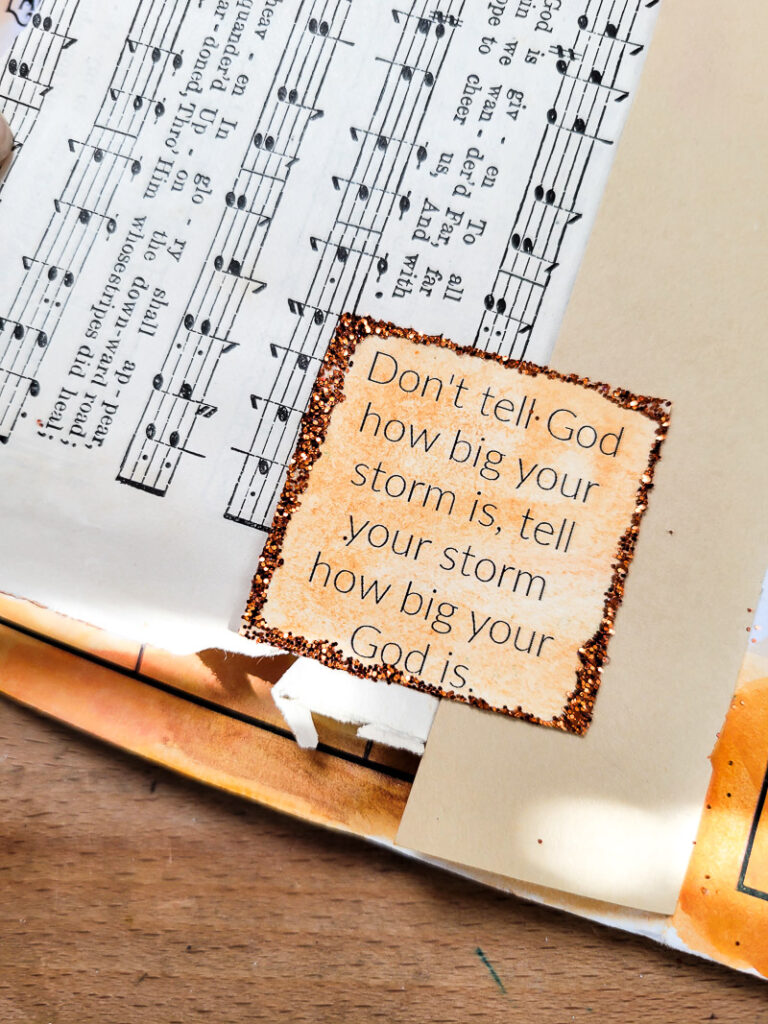 God is giv - en To all
in we wan - der'd Far, far
ope to cheer us, And with
heav - en In glo - ry shall ap - pear,
quander'd Up - on the down-ward road;
ar-doned, Thro' Him whose stripes did heal;
Don't tell God
how big your
storm is, tell
your storm
how big your
God is.